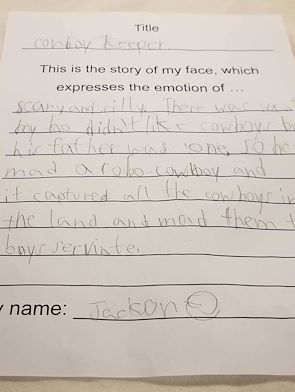 Title
cowboy keeper.
This is the story of my face, which
expresses the emotion of ...
scary and silly. There was a
boy ho didn't like cowboys b
his father was one, so he
mad a robo-cowboy and
it captured all the cowboys in
the land and mad them t
boys servinte.
name: Jackon